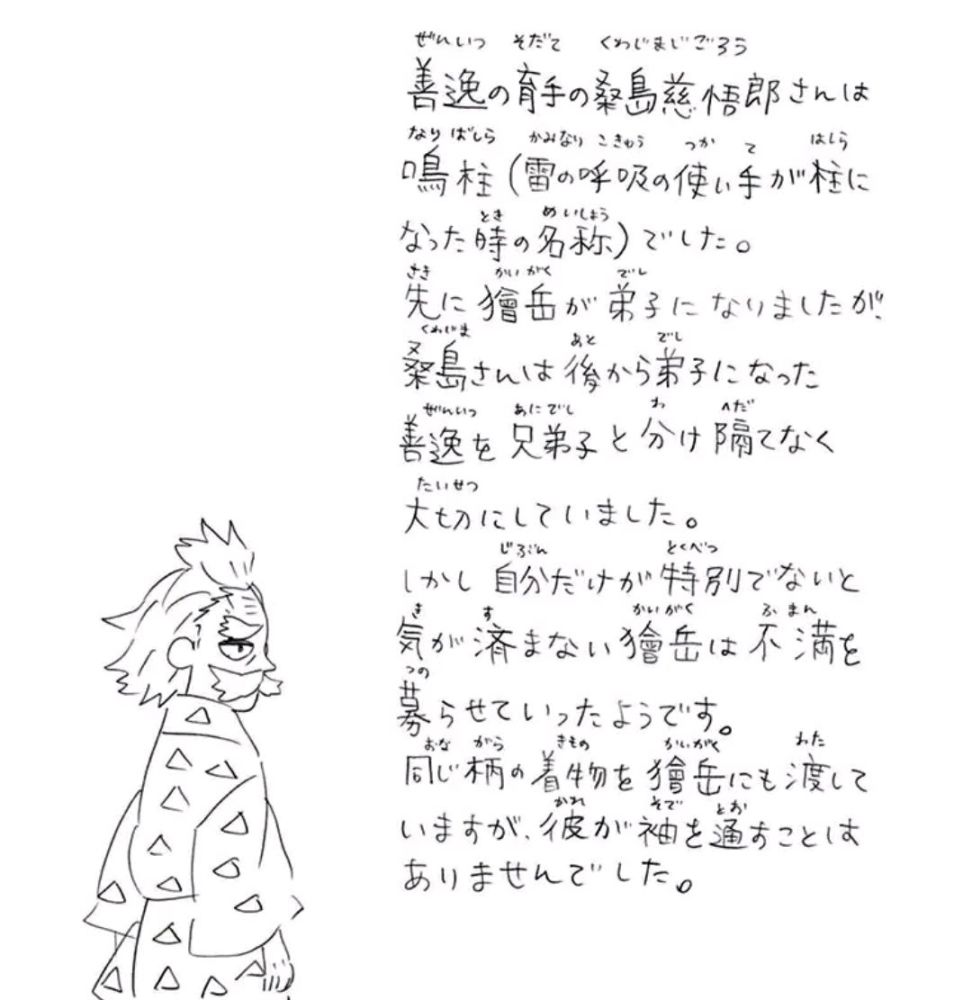 ぜんいつ そだて くわじまじごろう
善逸の育手の桑島慈悟郎さんは
なりばしら かみなり こきゅう つか て はしら
鳴柱(雷の呼吸の使い手が柱に
とき めいしょう
なった時の名称)でした。
さき かいがく でし
先に獪岳が弟子になりましたが、
くわじま あと でし
桑島さんは後から弟子になった
ぜんいつ あにでし わ へだ
善逸を兄弟子と分け隔てなく
たいせつ
大切にしていました。
じぶん とくべつ
しかし自分だけが特別でないと
き す かいがく ふまん
気が済まない獪岳は不満を
つの
募らせていったようです。
おな がら きもの かいがく わた
同じ柄の着物を獪岳にも渡して
かれ そで とお
いますが、彼が袖を通すことは
ありませんでした。